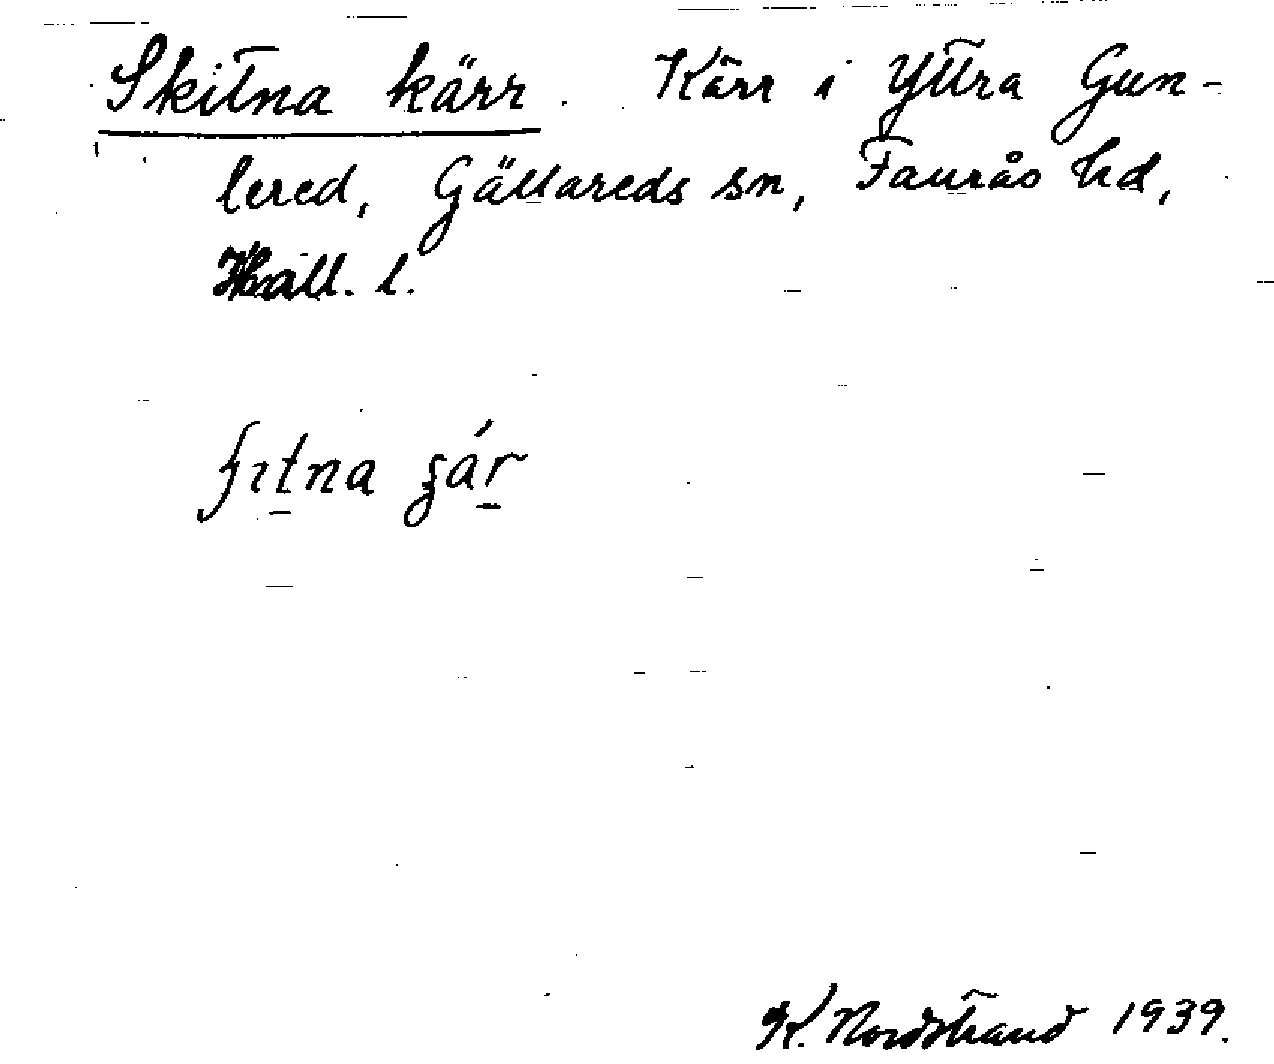 Skitna kärr. Kärr i Yttra Gun-
lered, Gällareds sn, Faurås hd,
Hall. l.
ʃıtna ʒár
K. Nordstrand 1939.